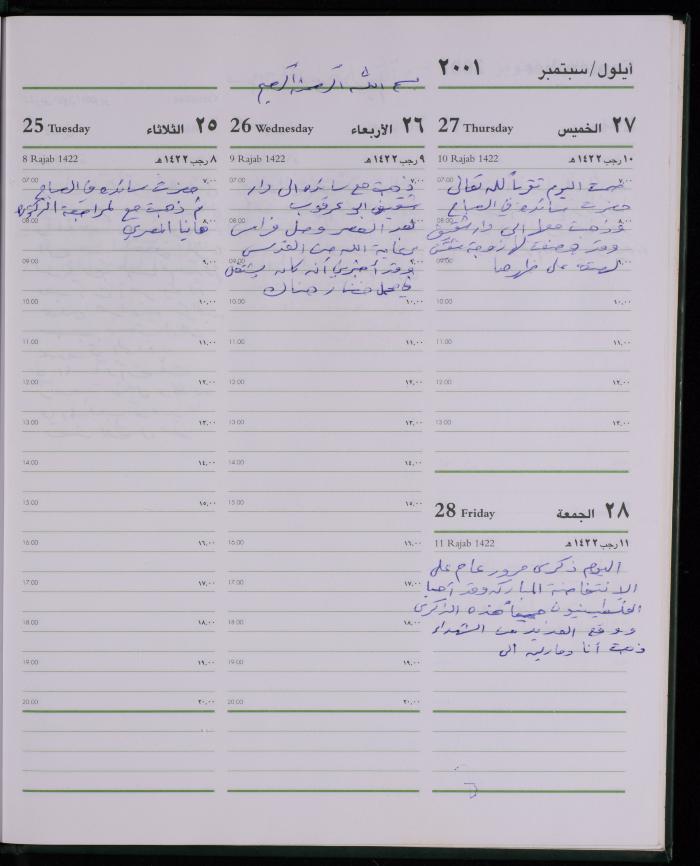 أيلول/سبتمبر ٢٠٠١
بسم الله الرحمن الرحيم
25 Tuesday الثلاثاء ٢٥
8 Rajab 1422 ٨ رجب ١٤٢٢هـ
07:00 ٧,٠٠
حضرت سائده في الصباح
ثم ذهبت مع لمراجعة الدكتوره
08:00 ٨,٠٠
هانيا المصري
09:00 ٩,٠٠
10:00 ١٠,٠٠
11:00 ١١,٠٠
12:00 ١٢,٠٠
13:00 ١٣,٠٠
14:00 ١٤,٠٠
15:00 ١٥,٠٠
16:00 ١٦,٠٠
17:00 ١٧,٠٠
18:00 ١٨,٠٠
19:00 ١٩,٠٠
20:00 ٢٠,٠٠
26 Wednesday الأربعاء ٢٦
9 Rajab 1422 ٩ رجب ١٤٢٢هـ
07:00 ٧,٠٠
ذهبت مع سائده الى دار
شقيق ابو عرقوب
08:00 ٨,٠٠
بعد العصر وصل فراس
برعاية الله من القدس
09:00 ٩,٠٠
وقد أخبرني أنه كان يشتغل
في محل خضار هناك
10:00 ١٠,٠٠
11:00 ١١,٠٠
12:00 ١٢,٠٠
13:00 ١٣,٠٠
14:00 ١٤,٠٠
15:00 ١٥,٠٠
16:00 ١٦,٠٠
17:00 ١٧,٠٠
18:00 ١٨,٠٠
19:00 ١٩,٠٠
20:00 ٢٠,٠٠
27 Thursday الخميس ٢٧
10 Rajab 1422 ١٠ رجب ١٤٢٢هـ
07:00 ٧,٠٠
صمت اليوم تقرباً لله تعالى
حضرت سائده في الصباح
08:00 ٨,٠٠
وذهبت معها الى دار شقيق
وقد وضعت لها زوجة شقيق
09:00 ٩,٠٠
لصقة على ظهرها
10:00 ١٠,٠٠
11:00 ١١,٠٠
12:00 ١٢,٠٠
13:00 ١٣,٠٠
28 Friday الجمعة ٢٨
11 Rajab 1422 ١١ رجب ١٤٢٢هـ
اليوم ذكرى مرور عام على
الانتفاضة المباركه وقد أحيا
الفلسطينيون جميعاً هذه الذكرى
ووقع العديد من الشهداء
ذهبت أنا الى